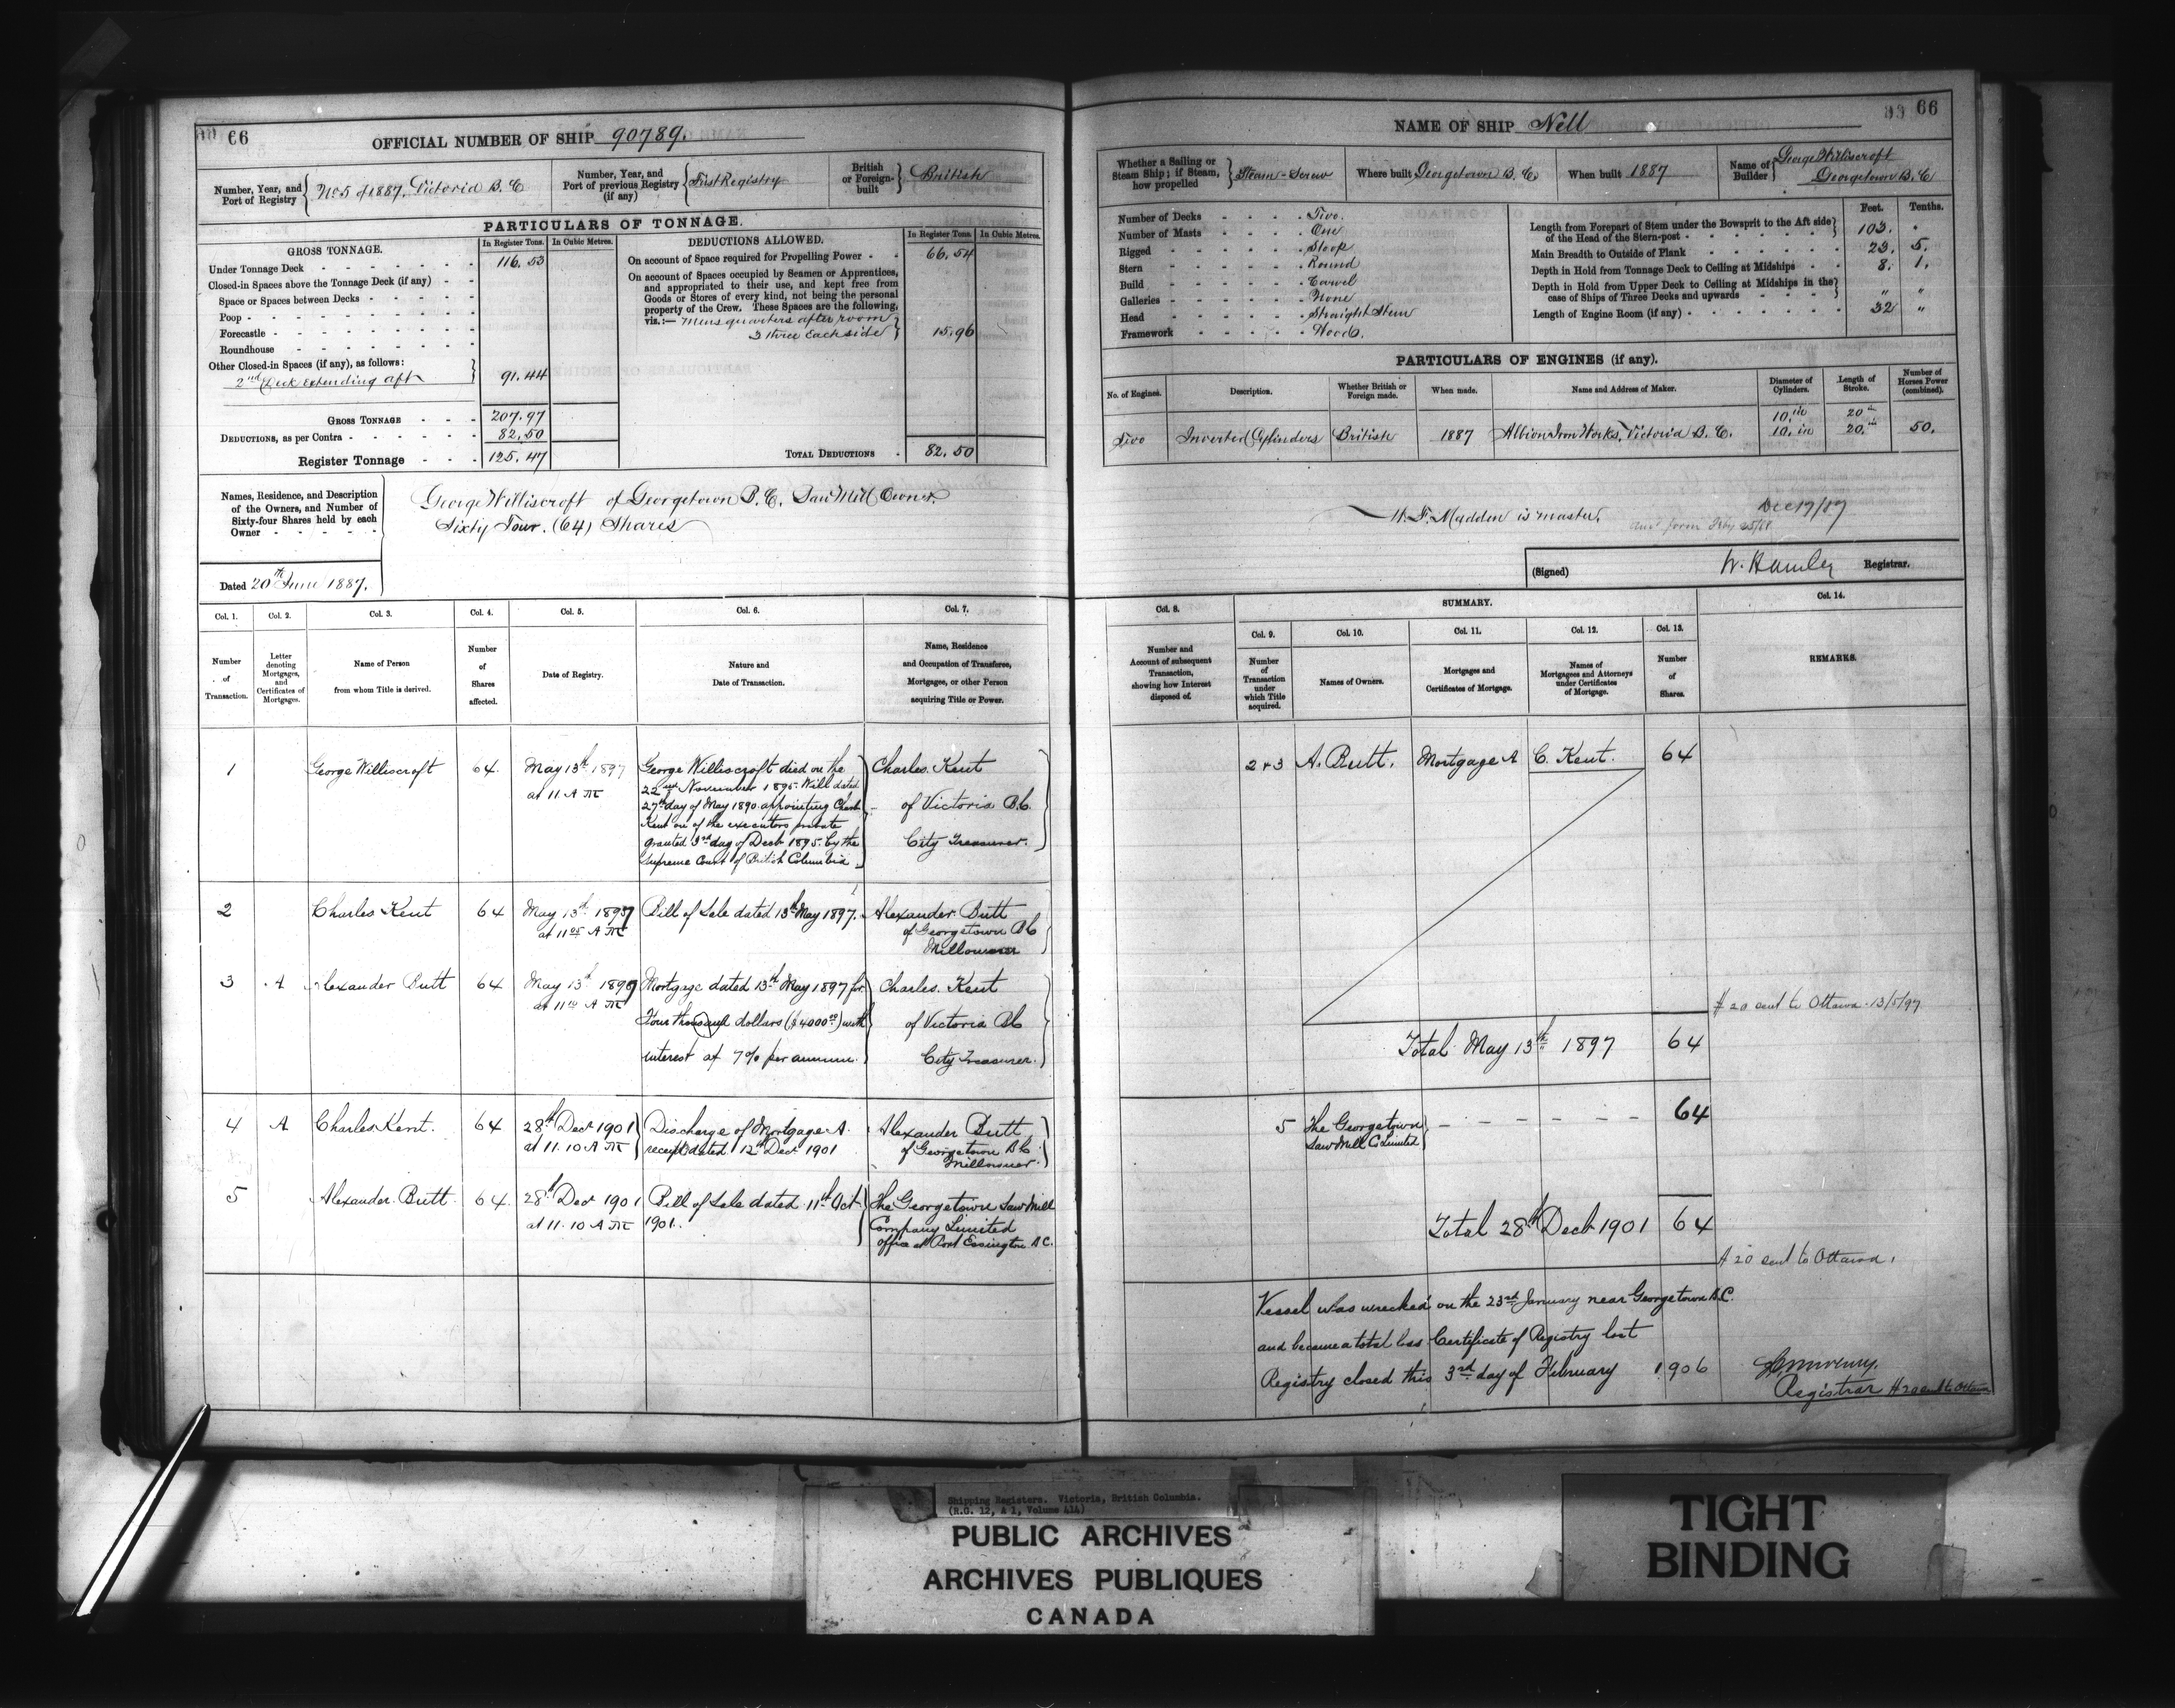 66
OFFICIAL NUMBER OF SHIP 90789.
Number, Year, and Port of Registry No. 5 of 1887. Victoria B. C
Number, Year, and Port of previous Registry (if any) First Registry
British or Foreign-built British
PARTICULARS OF TONNAGE.
GROSS TONNAGE. In Register Tons. In Cubic Metres.
Under Tonnage Deck 116. 53
Closed-in Spaces above the Tonnage Deck (if any)
Space or Spaces between Decks
Poop
Forecastle
Roundhouse
Other Closed-in Spaces (if any), as follows:
2nd Deck Extending aft 91. 44
GROSS TONNAGE 207. 97
DEDUCTIONS, as per Contra 82. 50
Register Tonnage 125. 47
DEDUCTIONS ALLOWED. In Register Tons. In Cubic Metres.
On account of Space required for Propelling Power 66. 54
On account of Spaces occupied by Seamen or Apprentices,
and appropriated to their use, and kept free from
Goods or Stores of every kind, not being the personal
property of the Crew. These Spaces are the following,
viz.:— Mens quarters after room
3 three each side 15. 96
TOTAL DEDUCTIONS 82. 50
Names, Residence, and Description
of the Owners, and Number of
Sixty-four Shares held by each
Owner
George Williscroft of Georgetown B. C. Saw Mill Owner.
Sixty Four. (64) Shares
Dated 20th June 1887.
Col. 1. Col. 2. Col. 3. Col. 4. Col. 5. Col. 6. Col. 7.
Number of Transaction.
Letter denoting Mortgages, and Certificates of Mortgages.
Name of Person from whom Title is derived.
Number of Shares affected.
Date of Registry.
Nature and Date of Transaction.
Name, Residence and Occupation of Transferee, Mortgagee, or other Person acquiring Title or Power.
1 George Williscroft 64. May 13th 1897
at 11 A M
George Williscroft died on the
22nd November 1895. Will dated
27th day of May 1890 appointing Charles
Kent one of the executors probate
granted 3rd day of Decb 1895. by the
Supreme Court of British Columbia
Charles. Kent
of Victoria B.C.
City Treasurer.
2 Charles Kent 64 May 13th 1897
at 11 05 A M
Bill of Sale dated 13th May 1897.
Alexander Butt
of Georgetown BC
Millowner
3 A Alexander Butt 64 May 13th 1897
at 11 10 A M
Mortgage dated 13th May 1897 for
Four thousand dollars ($4000 00) with
interest at 7% per annum.
Charles. Kent
of Victoria BC
City Treasurer.
4 A. Charles Kent. 64 28th Decr 1901
at 11. 10 A M
Discharge of Mortgage A.
receipt dated. 12th Decr 1901
Alexander Butt
of Georgetown BC
Millowner.
5 Alexander Butt 64. 28th Decr 1901
at 11. 10 A M
Bill of Sale dated 11th Oct
1901.
The Georgetown Saw Mill
Company Limited
office at Port Essington B.C.
66
NAME OF SHIP Nell
Whether a Sailing or Steam Ship; if Steam, how propelled Steam - Screw
Where built Georgetown B. C.
When built 1887
Name of Builder George Williscroft
Georgetown B. C
Number of Decks Two.
Number of Masts One
Rigged Sloop
Stern Round
Build Carvel
Galleries None
Head Straight Stem
Framework Wood.
Feet. Tenths.
Length from Forepart of Stem under the Bowsprit to the Aft side
of the Head of the Stern-post 103. "
Main Breadth to Outside of Plank 23. 5.
Depth in Hold from Tonnage Deck to Ceiling at Midships 8. 1.
Depth in Hold from Upper Deck to Ceiling at Midships in the
case of Ships of Three Decks and upwards " "
Length of Engine Room (if any) 32 "
PARTICULARS OF ENGINES (if any).
No. of Engines. Description. Whether British or Foreign made. When made. Name and Address of Maker. Diameter of Cylinders. Length of Stroke. Number of Horses Power (combined).
Two Inverted Cylinders British 1887 Albion Iron Works, Victoria B. C. 10. in 10. in 20 in 20. in 50.
W. F. Madden is master. Dec 19/87
(Signed) W. Hamley Registrar.
Col. 8. SUMMARY. Col. 14.
Col. 9. Col. 10. Col. 11. Col. 12. Col. 13.
Number and Account of subsequent Transaction, showing how Interest disposed of.
Number of Transaction under which Title acquired.
Names of Owners.
Mortgages and Certificates of Mortgage.
Names of Mortgagees and Attorneys under Certificates of Mortgage.
Number of Shares.
REMARKS.
2 + 3 A. Butt. Mortgage A C. Kent. 64
# 20 sent to Ottawa. 13/5/97
Total May 13th 1897 64
5 The Georgetown
Saw Mill Co Limited 64
Total 28th Decb 1901 64
# 20 sent to Ottawa.
Vessel was wrecked on the 23rd January near Georgetown B.C.
and became a total loss Certificate of Registry lost
Registry closed this 3rd day of February 1906
Registrar # 20 sent to Ottawa
Shipping Registers. Victoria, British Columbia.
(R.G. 12, A 1, Volume 414)
PUBLIC ARCHIVES
ARCHIVES PUBLIQUES
CANADA
TIGHT
BINDING